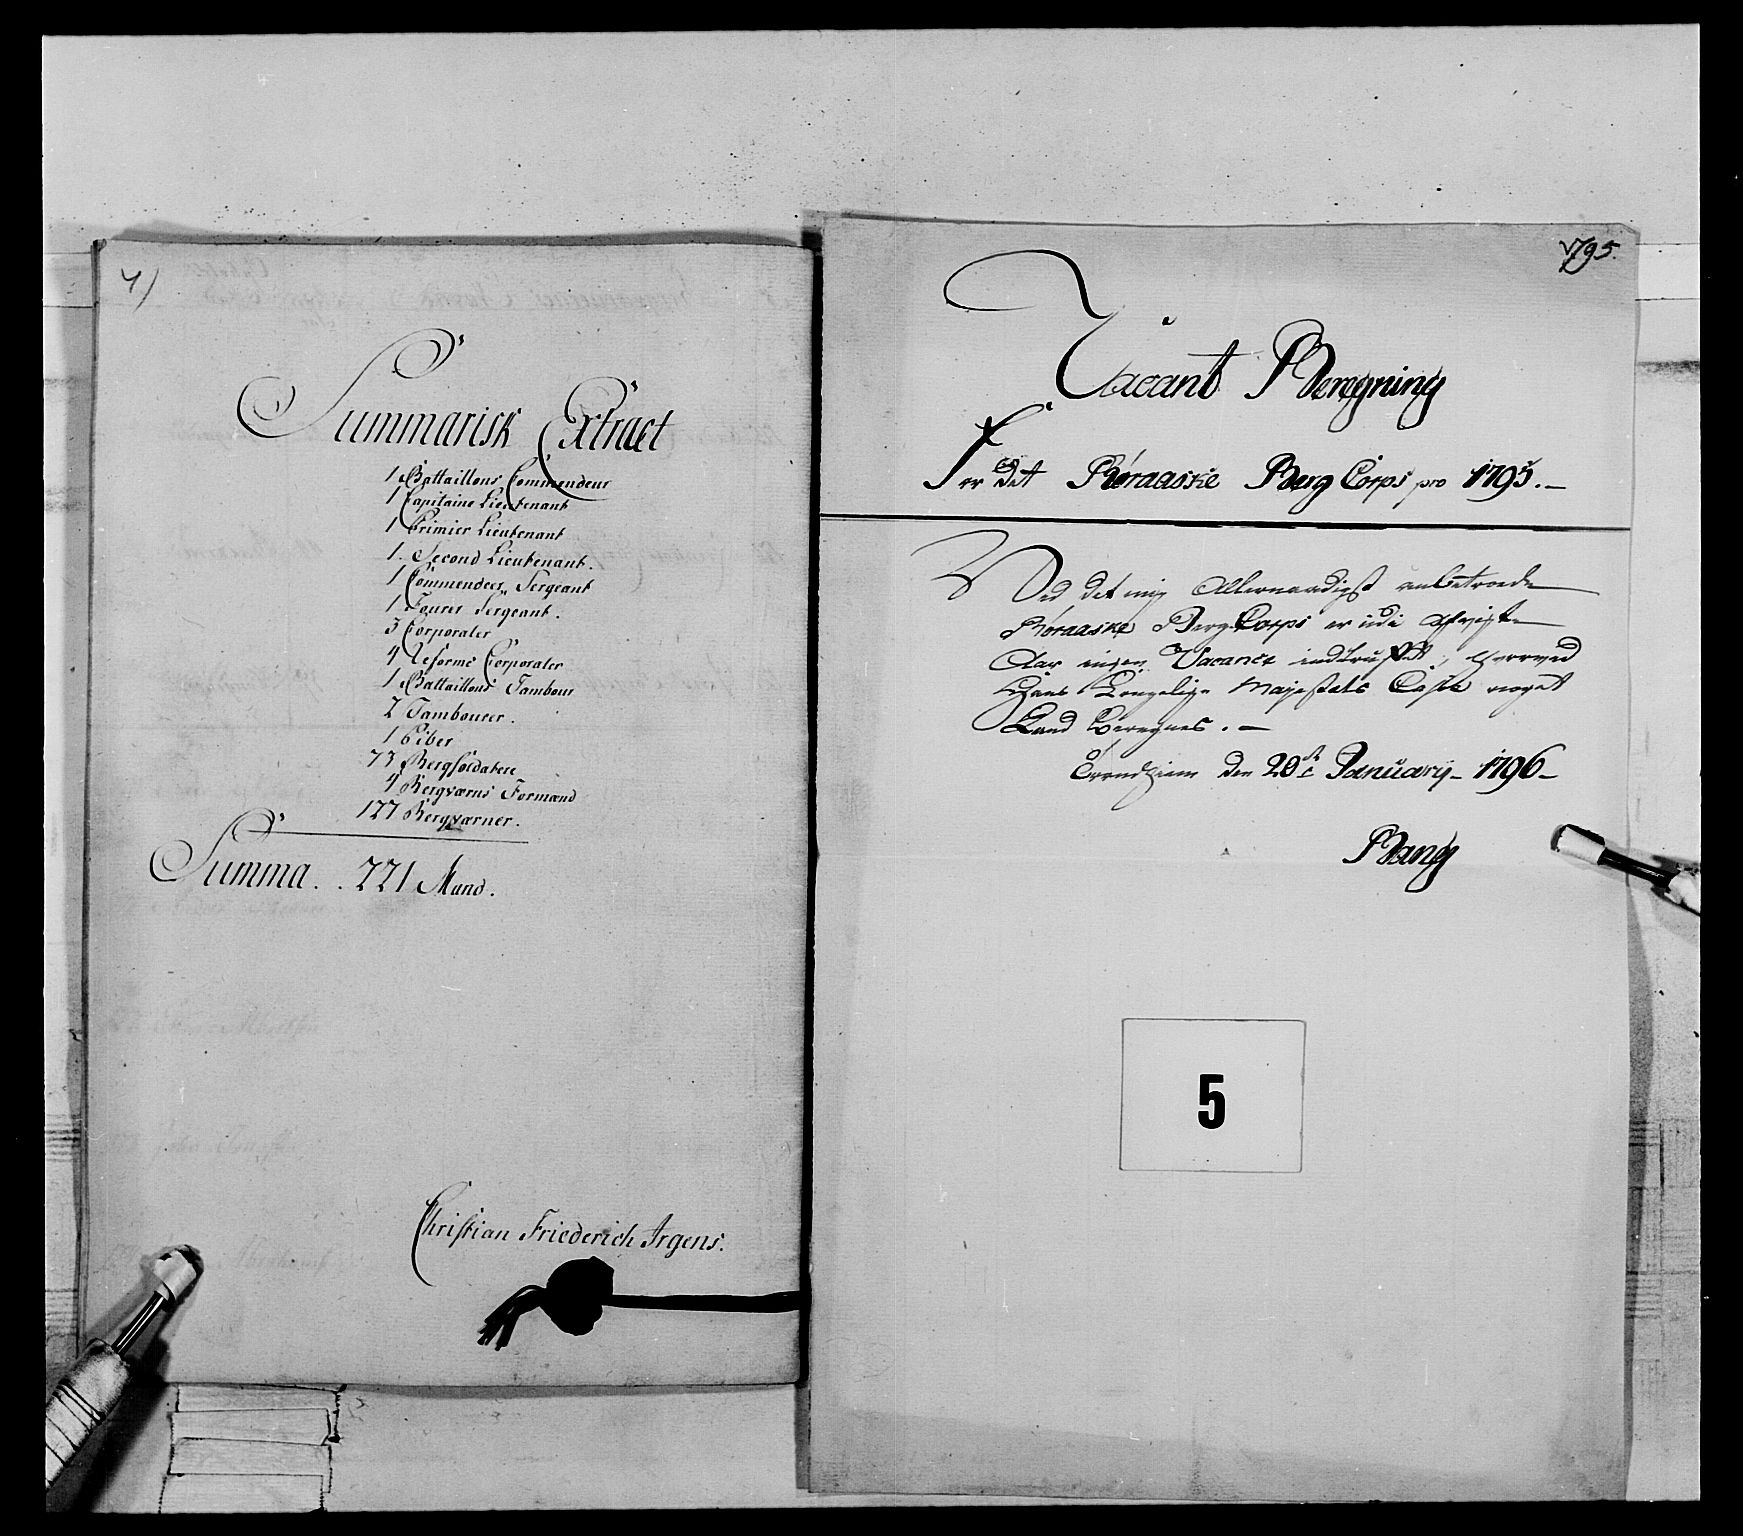 4)
Summarisk Extract
1 Battaillons Commendeur
1 Capitaine Lieutenant
1 Primier Lieutenant
1. Second Lieutenant.
1 Commendeer Sergeant
1 Fourer Sergeant.
3 Corporaler
4 Reforme Corporaler
1 Battaillons Tambour
2 Tambourer.
1 Piber
73 Bergsoldatere
4 Bergværns Formænd
127 Bergværner.
Summa. . 221 Mand.
Christian Friederich Irgens.
1795.
Vacant Beregning
For det Röraaske Berg Corps pro 1795. —
Ved det mig Allernaadigst anbetroede
Röraaske Berg Corps er udi Afvigte
Aar ingen Vacance indtruffet, hvorved
Hans Kongelige Majestets Casse noget
Kand beregnes. —
Trondhiem den 20de January 1796 —
Bang
5